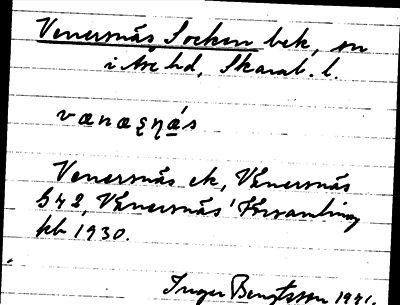 Venersnäs Socken bek, sn
i Åse hd, Skarab. l.
vænæʂɳä́s
Venersnäs ek, Vänersnäs
G 4 2, Vänersnäs' församling
kb 1930.
Inger Bengtsson 1941.